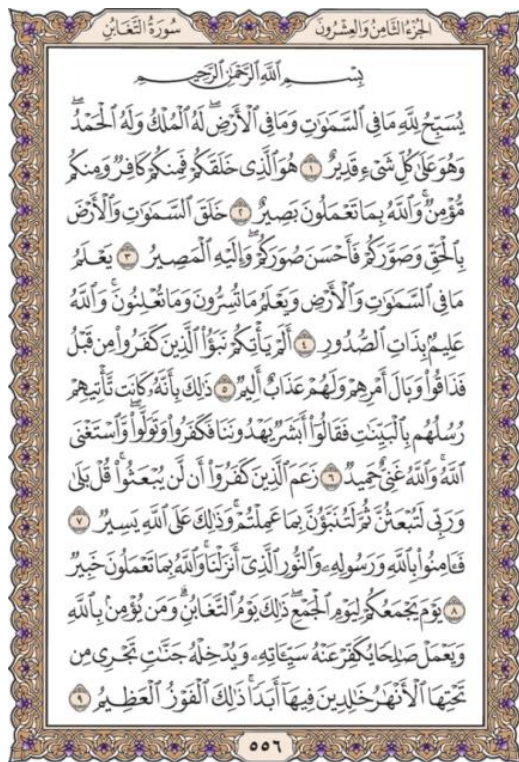 سُورَةُ التَّغَابُنِ
الجُزْءُ الثَّامِنُ وَالعِشْرُونَ
بِسْمِ اللَّهِ الرَّحْمَٰنِ الرَّحِيمِ
يُسَبِّحُ لِلَّهِ مَا فِي السَّمَٰوَٰتِ وَمَا فِي الْأَرْضِ ۖ لَهُ الْمُلْكُ وَلَهُ الْحَمْدُ ۖ
وَهُوَ عَلَىٰ كُلِّ شَيْءٍ قَدِيرٌ ١ هُوَ الَّذِي خَلَقَكُمْ فَمِنكُمْ كَافِرٌ وَمِنكُم
مُّؤْمِنٌ ۚ وَاللَّهُ بِمَا تَعْمَلُونَ بَصِيرٌ ٢ خَلَقَ السَّمَٰوَٰتِ وَالْأَرْضَ
بِالْحَقِّ وَصَوَّرَكُمْ فَأَحْسَنَ صُوَرَكُمْ ۖ وَإِلَيْهِ الْمَصِيرُ ٣ يَعْلَمُ
مَا فِي السَّمَٰوَٰتِ وَالْأَرْضِ وَيَعْلَمُ مَا تُسِرُّونَ وَمَا تُعْلِنُونَ ۚ وَاللَّهُ
عَلِيمٌ بِذَاتِ الصُّدُورِ ٤ أَلَمْ يَأْتِكُمْ نَبَؤُا۟ الَّذِينَ كَفَرُوا۟ مِن قَبْلُ
فَذَاقُوا۟ وَبَالَ أَمْرِهِمْ وَلَهُمْ عَذَابٌ أَلِيمٌ ٥ ذَٰلِكَ بِأَنَّهُۥ كَانَت تَّأْتِيهِمْ
رُسُلُهُم بِالْبَيِّنَٰتِ فَقَالُوٓا۟ أَبَشَرٌ يَهْدُونَنَا فَكَفَرُوا۟ وَتَوَلَّوا۟ ۚ وَّاسْتَغْنَى
اللَّهُ ۚ وَاللَّهُ غَنِيٌّ حَمِيدٌ ٦ زَعَمَ الَّذِينَ كَفَرُوٓا۟ أَن لَّن يُبْعَثُوا۟ ۚ قُلْ بَلَىٰ
وَرَبِّي لَتُبْعَثُنَّ ثُمَّ لَتُنَبَّؤُنَّ بِمَا عَمِلْتُمْ ۚ وَذَٰلِكَ عَلَى اللَّهِ يَسِيرٌ ٧
فَـَٔامِنُوا۟ بِاللَّهِ وَرَسُولِهِۦ وَالنُّورِ الَّذِيٓ أَنزَلْنَا ۚ وَاللَّهُ بِمَا تَعْمَلُونَ خَبِيرٌ
٨ يَوْمَ يَجْمَعُكُمْ لِيَوْمِ الْجَمْعِ ۖ ذَٰلِكَ يَوْمُ التَّغَابُنِ ۗ وَمَن يُؤْمِنۢ بِاللَّهِ
وَيَعْمَلْ صَٰلِحًا يُكَفِّرْ عَنْهُ سَيِّـَٔاتِهِۦ وَيُدْخِلْهُ جَنَّٰتٍ تَجْرِي مِن
تَحْتِهَا الْأَنْهَٰرُ خَٰلِدِينَ فِيهَآ أَبَدًا ۚ ذَٰلِكَ الْفَوْزُ الْعَظِيمُ ٩
٥٥٦